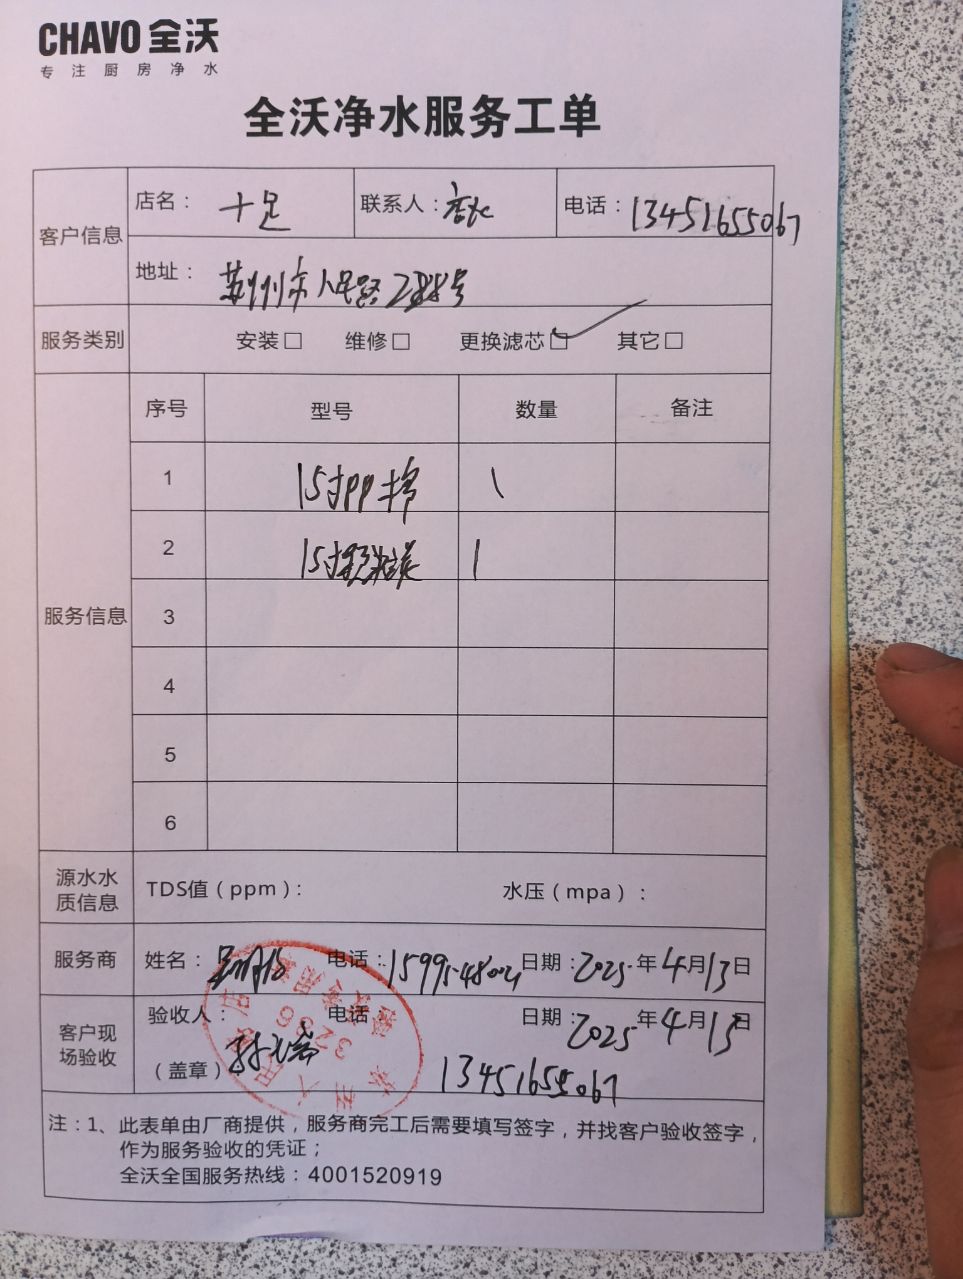 CHAVO 全沃
专注厨房净水
全沃净水服务工单
客户信息
店名： 十足 联系人：店长 电话：13451655067
地址： 苏州市人民路288号
服务类别 安装□ 维修□ 更换滤芯☑ 其它□
服务信息
序号 型号 数量 备注
1 15寸PP棉 1
2 15寸颗粒炭 1
3
4
5
6
源水水质信息 TDS值（ppm）： 水压（mpa）：
服务商 姓名： 电话：15995248002 日期：2025年4月13日
客户现场验收 验收人： 电话： 日期：2025年4月13日
（盖章） 13451655067
3236
注：1、此表单由厂商提供，服务商完工后需要填写签字，并找客户验收签字，
作为服务验收的凭证；
全沃全国服务热线：4001520919